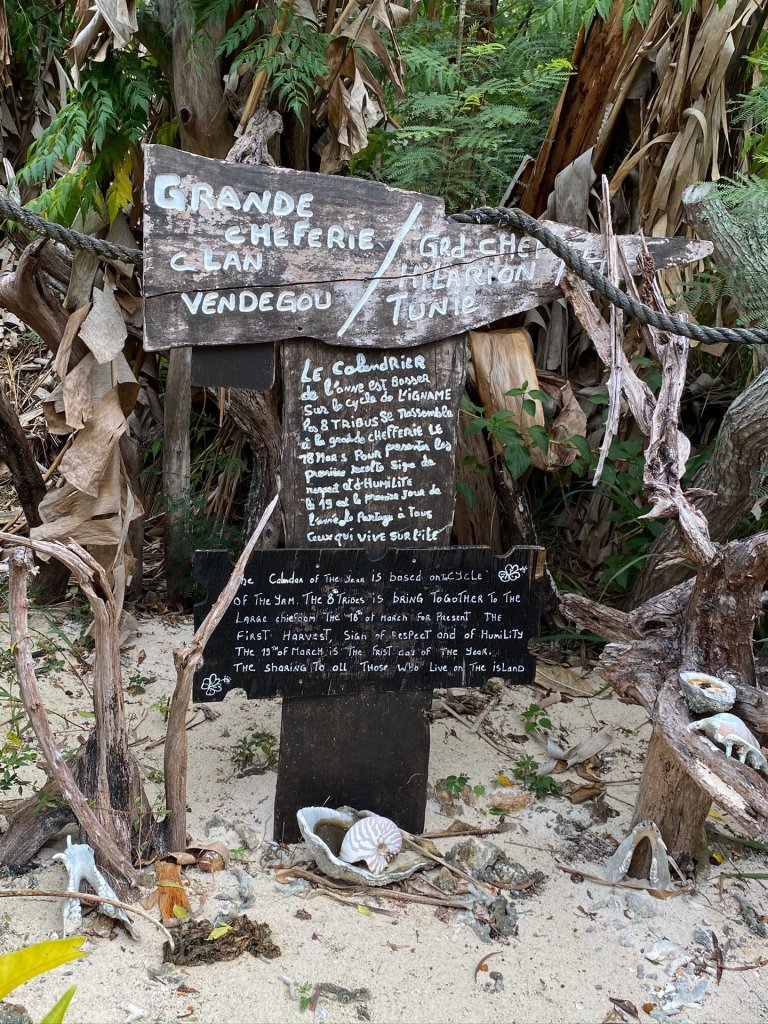 GRANDE
CHEFERIE
CLAN
VENDEGOU
/
GRD CHE
HILARION
TUNIE
LE CALENDRIER
de L'anne EST Bosser
Sur le cycle de L'IGNAME
les 8 TRIBUS SE RASSEMBLE
à la grande CHEFFERIE LE
18 MARS Pour presenter les
premiere recolte Signe de
respect et d'HUMILITE
le 19 et le premier Jour de
l'anné le Partage à Tous
Ceux qui vive sur l'île
The Calendar of The year is based on CYCLE
OF THE YAM. THE 8 TRIBES IS BRING TOGOTHER TO THE
LARGE chiefdom THE 18th of MARCH FOR PRESENT THE
FIRST HARVEST, SIGN of RESPECT AND of HUMILITY
THE 19th of MARCH IS THE FRIST DAY OF THE YEAR.
THE SHARING TO ALL THOSE WHO LIVE ON THE ISLAND